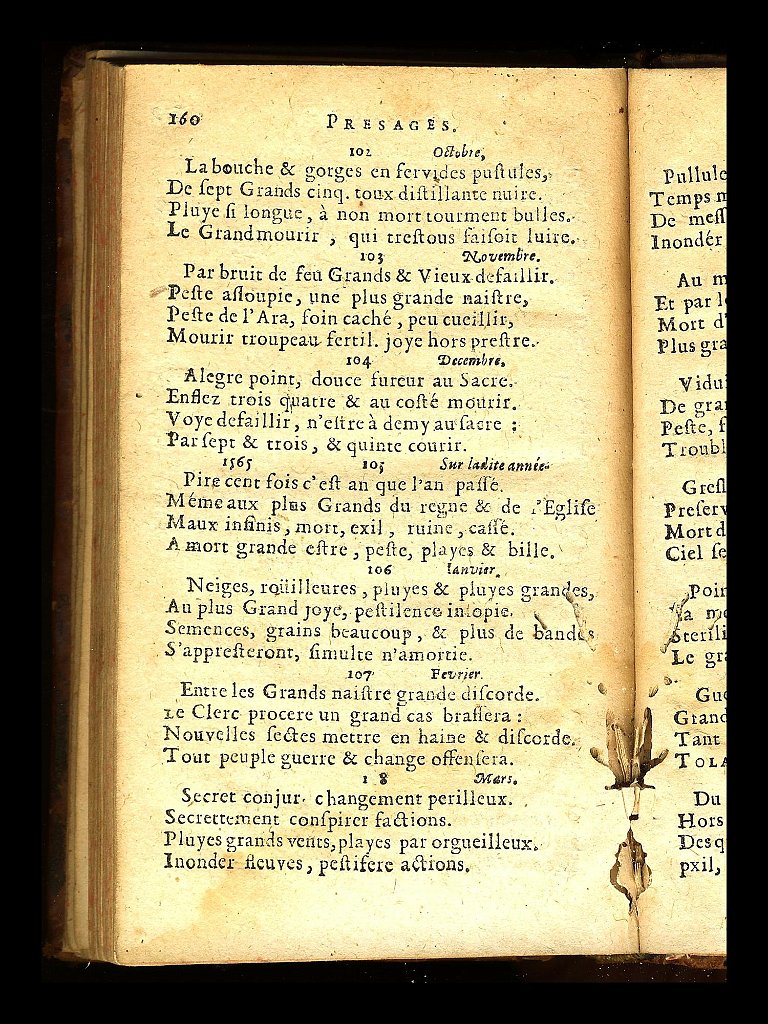 160 PRESAGES.
102 Octobre,
La bouche & gorges en fervides puſtules,
De ſept Grands cinq. toux diſtillante nuire.
Pluye ſi longue, à non mort tourment bulles.
Le Grand mourir, qui treſtous faiſoit luire.
103 Novembre.
Par bruit de feu Grands & Vieux defaillir.
Peſte aſſoupie, une plus grande naiſtre,
Peſte de l'Ara, foin caché, peu cueillir,
Mourir troupeau fertil. joye hors preſtre.
104 Decembre.
Alegre point, douce fureur au Sacre.
Enflez trois quatre & au coſté mourir.
Voye defaillir, n'eſtre à demy au ſacre :
Par ſept & trois, & quinte courir.
1565 105 Sur ladite année.
Pire cent fois c'eſt an que l'an paſſé.
Méme aux plus Grands du regne & de l'Egliſe
Maux infinis, mort, exil, ruine, caſſé.
A mort grande eſtre, peſte, playes & bille.
106 Ianvier.
Neiges, roüilleures, pluyes & playes grandes,
Au plus Grand joye, peſtilence inſopie.
Semences, grains beaucoup, & plus de bandes
S'appreſteront, ſimulte n'amortie.
107 Fevrier.
Entre les Grands naiſtre grande diſcorde.
Le Clerc procere un grand cas braſſera :
Nouvelles ſectes mettre en haine & diſcorde.
Tout peuple guerre & change offenſera.
1 8 Mars.
Secret conjur. changement perilleux.
Secrettement conſpirer factions.
Pluyes grands vents, playes par orgueilleux.
Inonder fleuves, peſtifere actions.
Pullule
Temps
De meſſ
Inondér
Au
Et par
Mort d'
Plus gra
Vidui
De gra
Peſte,
Troubl
Greſl
Preſerv
Mort d
Ciel ſe
Poin
Sterili
Le gra
Gu
Grand
Tant
TOLA
Du
Hors
Des q
pxil,